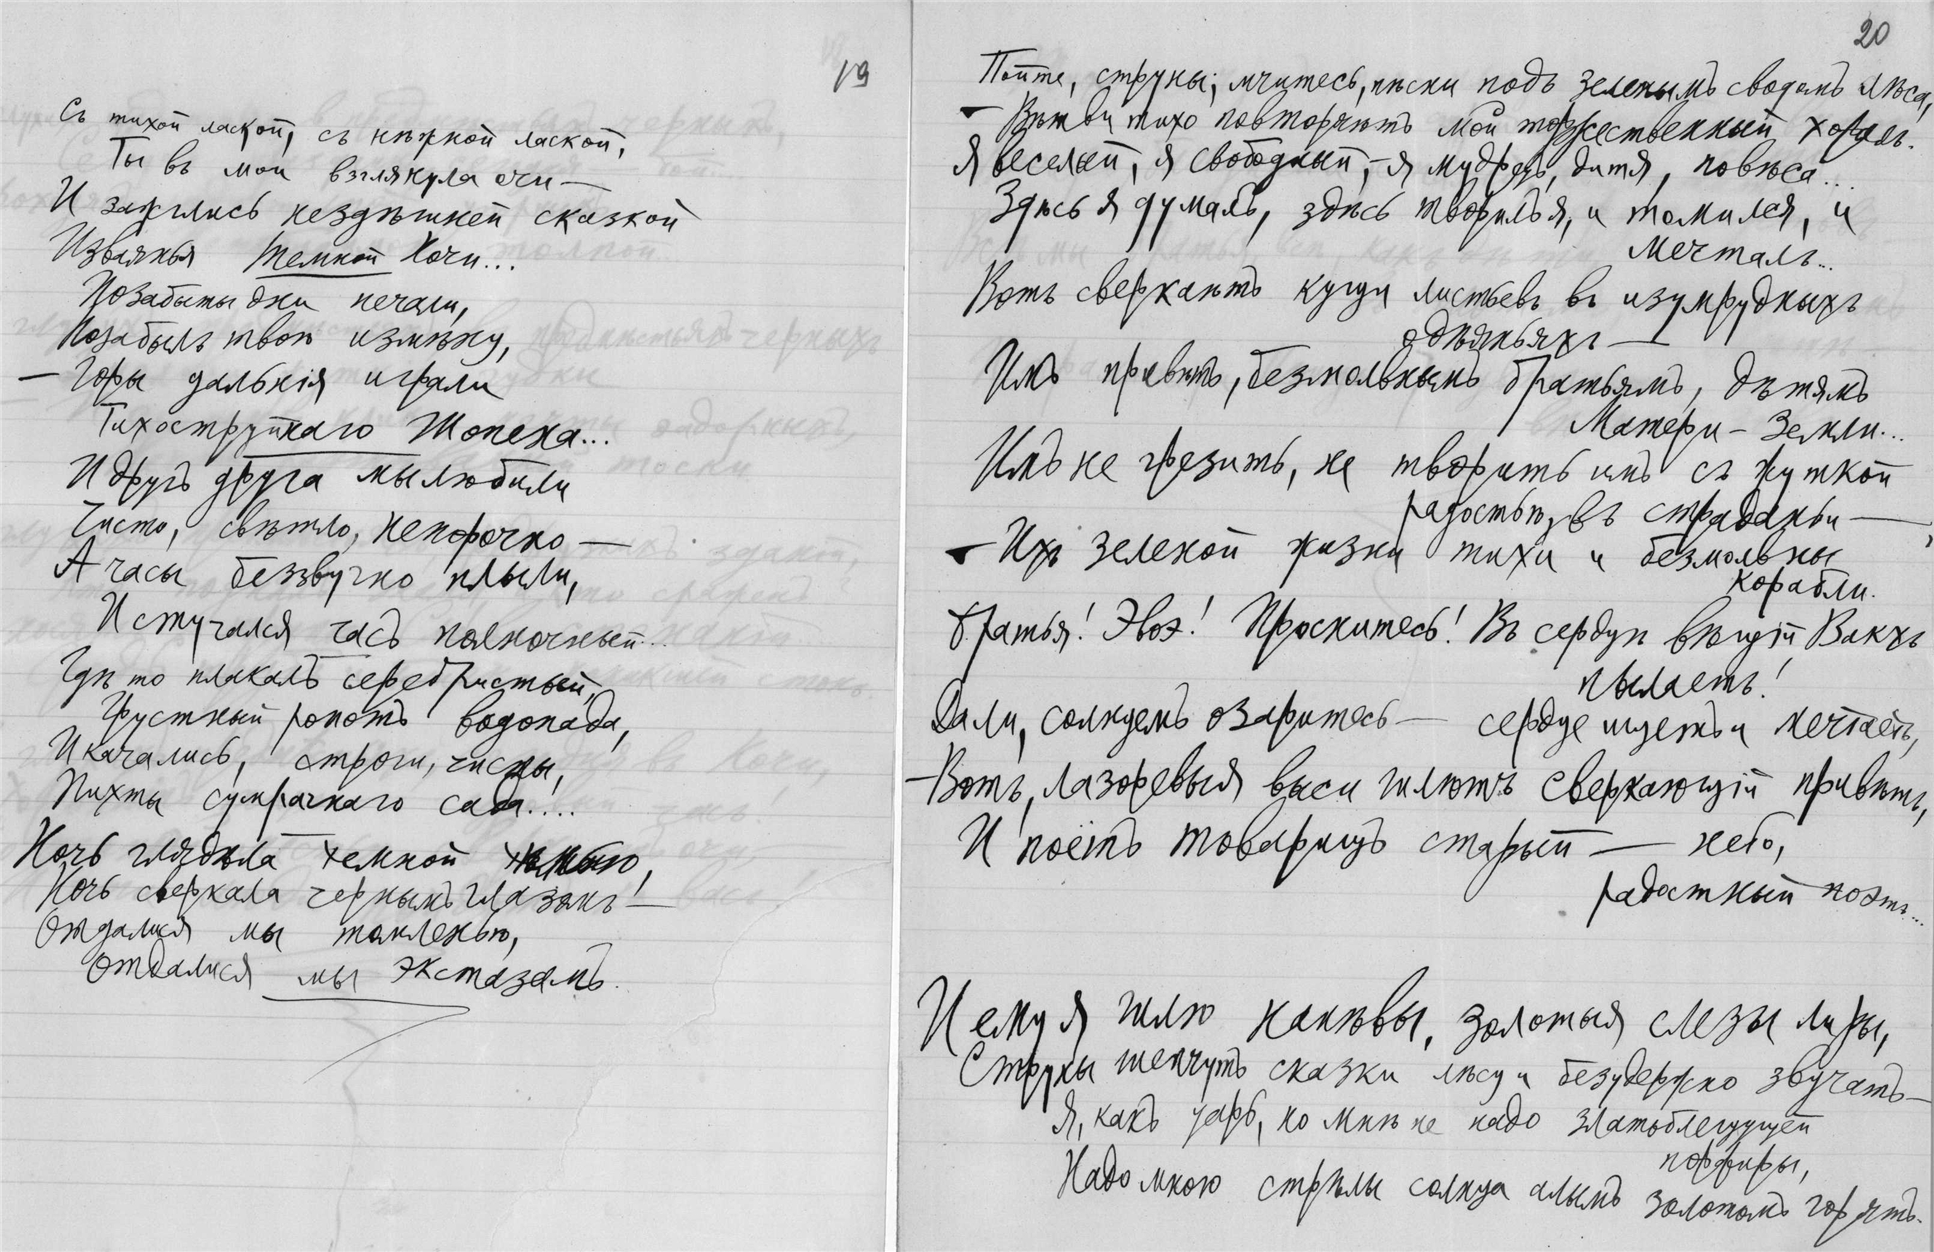 19
Съ тихой лаской, съ нѣжной лаской,
Ты въ мои взглянула очи —
И зажглись нездѣшней сказкой
Изваянья Темной Ночи...
Позабыты дни печали,
Позабылъ твою измѣну,
— Горы дальнія играли
Тихоструйнаго Шопена...
И другъ друга мы любили
Чисто, свѣтло, непорочно —
А часы беззвучно плыли,
И стучался часъ полночный...
Гдѣ то плакалъ серебристый,
Грустный ропотъ водопада,
И качались, строги, чисты,
Пихты сумрачнаго сада....
Ночь глядѣла темной
Ночь сверкала чернымъ глазомъ! —
Отдалися мы томленью,
Отдалися мы экстазамъ.
20
Пойте, струны; мчитесь, пѣсни подъ зеленымъ сводомъ лѣса,
— Вѣтви тихо повторяютъ мой торжественный хоралъ.
Я веселый, я свободный, — я мудрецъ, дитя, повѣса...
Здѣсь я думалъ, здѣсь творилъ я, и томился, и
мечталъ...
Вотъ сверкаютъ кущи листьевъ въ изумрудныхъ
одѣяньяхъ —
Имъ привѣтъ, безмолвнымъ братьямъ, дѣтямъ
Матери — Земли...
Имъ не грезить, не творить имъ съ жуткой
радостью, въ страданьи —
— Ихъ зеленой жизни тихи и безмолвны
корабли.
Братья! Эвоэ! Проснитесь! Въ сердцѣ вѣщій Вакхъ
пылаетъ!
Дали, солнцемъ озаритесь — сердце ищетъ и мечтаетъ,
— Вотъ, лазоревыя выси шлютъ сверкающій привѣтъ,
И поетъ товарищъ старый — небо,
радостный поэтъ...
И ему я шлю напѣвы, золотыя слезы лиры,
Струны шепчутъ сказки лѣсу и безудержно звучатъ —
Я, какъ царь, но мнѣ не надо златоблещущей
порфиры,
Надо мною стрѣлы солнца алымъ золотомъ горятъ.